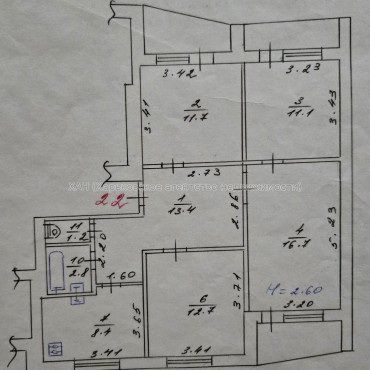 3.42
3.23
3.41
2
11.7
3
11.1
3.43
2.73
22
1
13.4
2.86
4
16.7
5.43
11
1.2
2.20
10
2.8
1.60
H=2.60
3.20
3.71
6
12.7
3.65
7
8.4
3.41
3.41